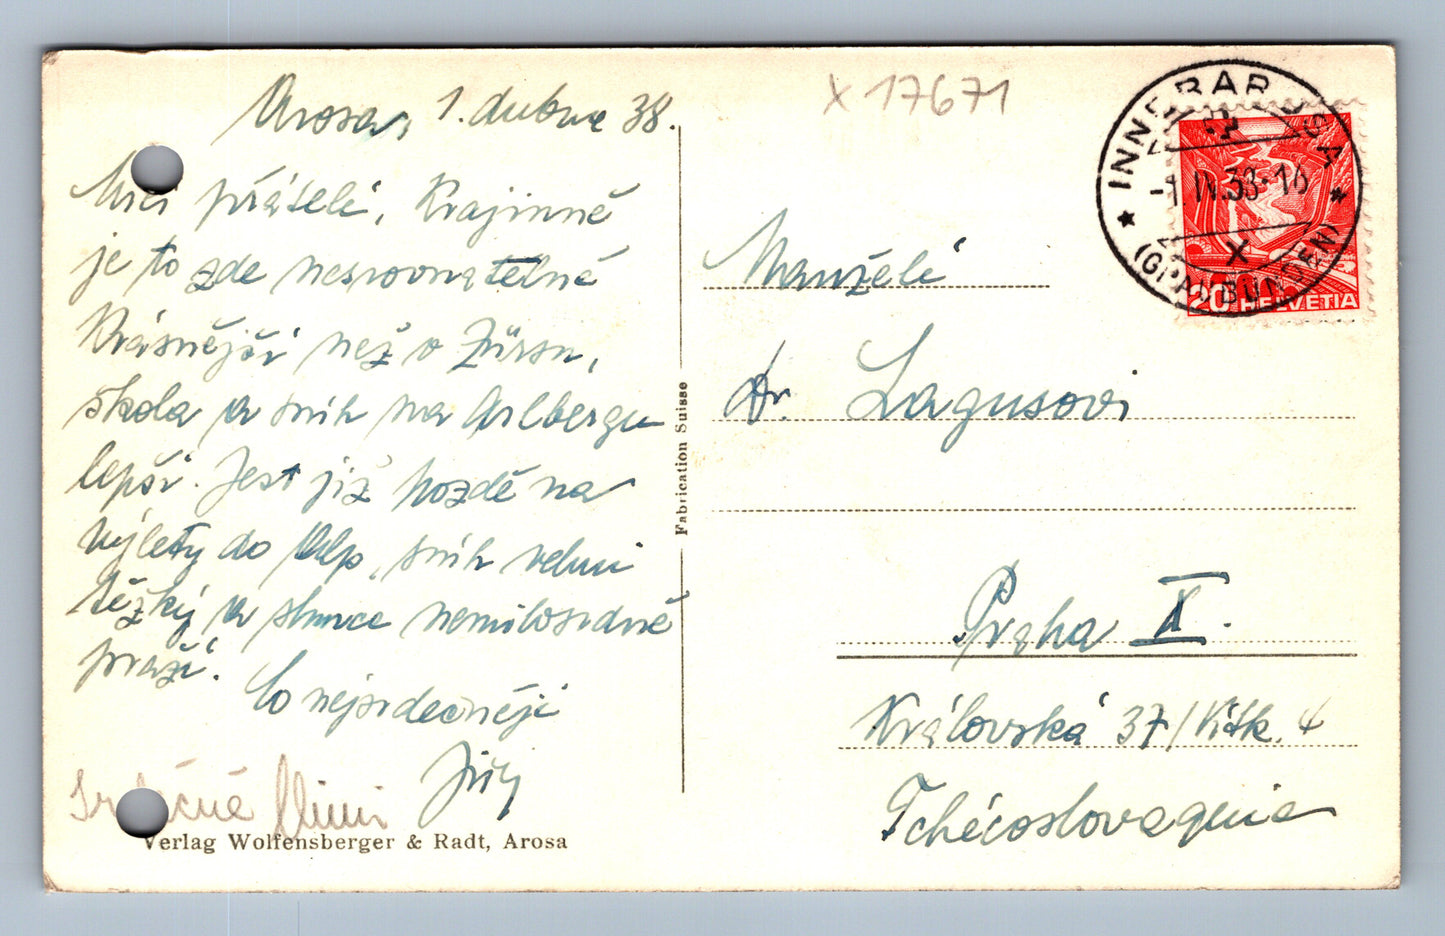 Arosa, 1. dubna 38.
Milí přátelé, Krajinně
je to zde nesrovnatelně
krásnější než v Zürsu,
škola a sníh na Arlbergu
lepší. Jest již pozdě na
výlety do Alp, sníh velmi
těžký a slunce nemilosrdně
praží.
Co nejsrdečněji
Jiří
Srdečně Mimi
Verlag Wolfensberger & Radt, Arosa
Fabrication Suisse
X 17671
INNERAROSA
-1.IV.38-16
X
(GRAUBÜNDEN)
20 HELVETIA
Manželé
Dr. Lagusovi
Praha XII.
Královská 37/Vítk. 4
Tchécoslovaquie